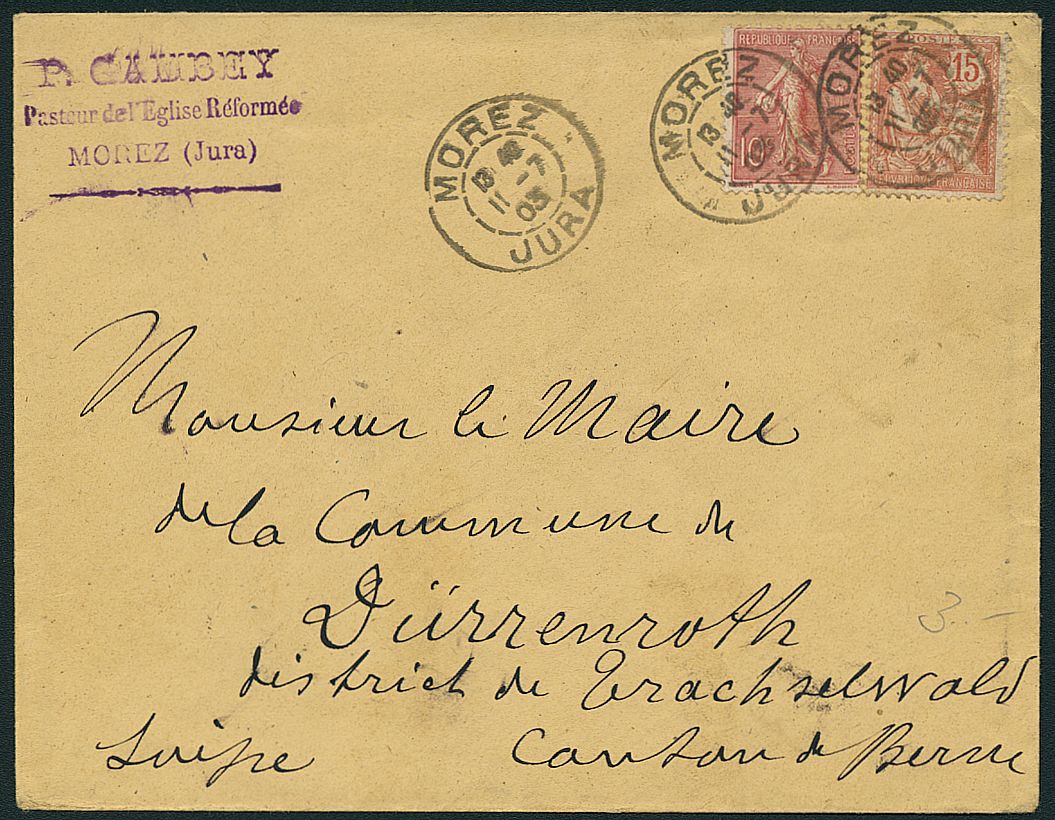 P. GAMBEY
Pasteur de l'Eglise Réformée
MOREZ (Jura)
MOREZ
13 40
11 -7
05
JURA
MOREZ
13 40
11 -7
05
JURA
REPUBLIQUE FRANÇAISE
10c
MOREZ
13 40
11 -7
05
JURA
POSTES
15
REPUBLIQUE FRANÇAISE
Monsieur le Maire
de la Commune de
Dürrenroth
district de Trachselwald
Suisse Canton de Berne
3.-